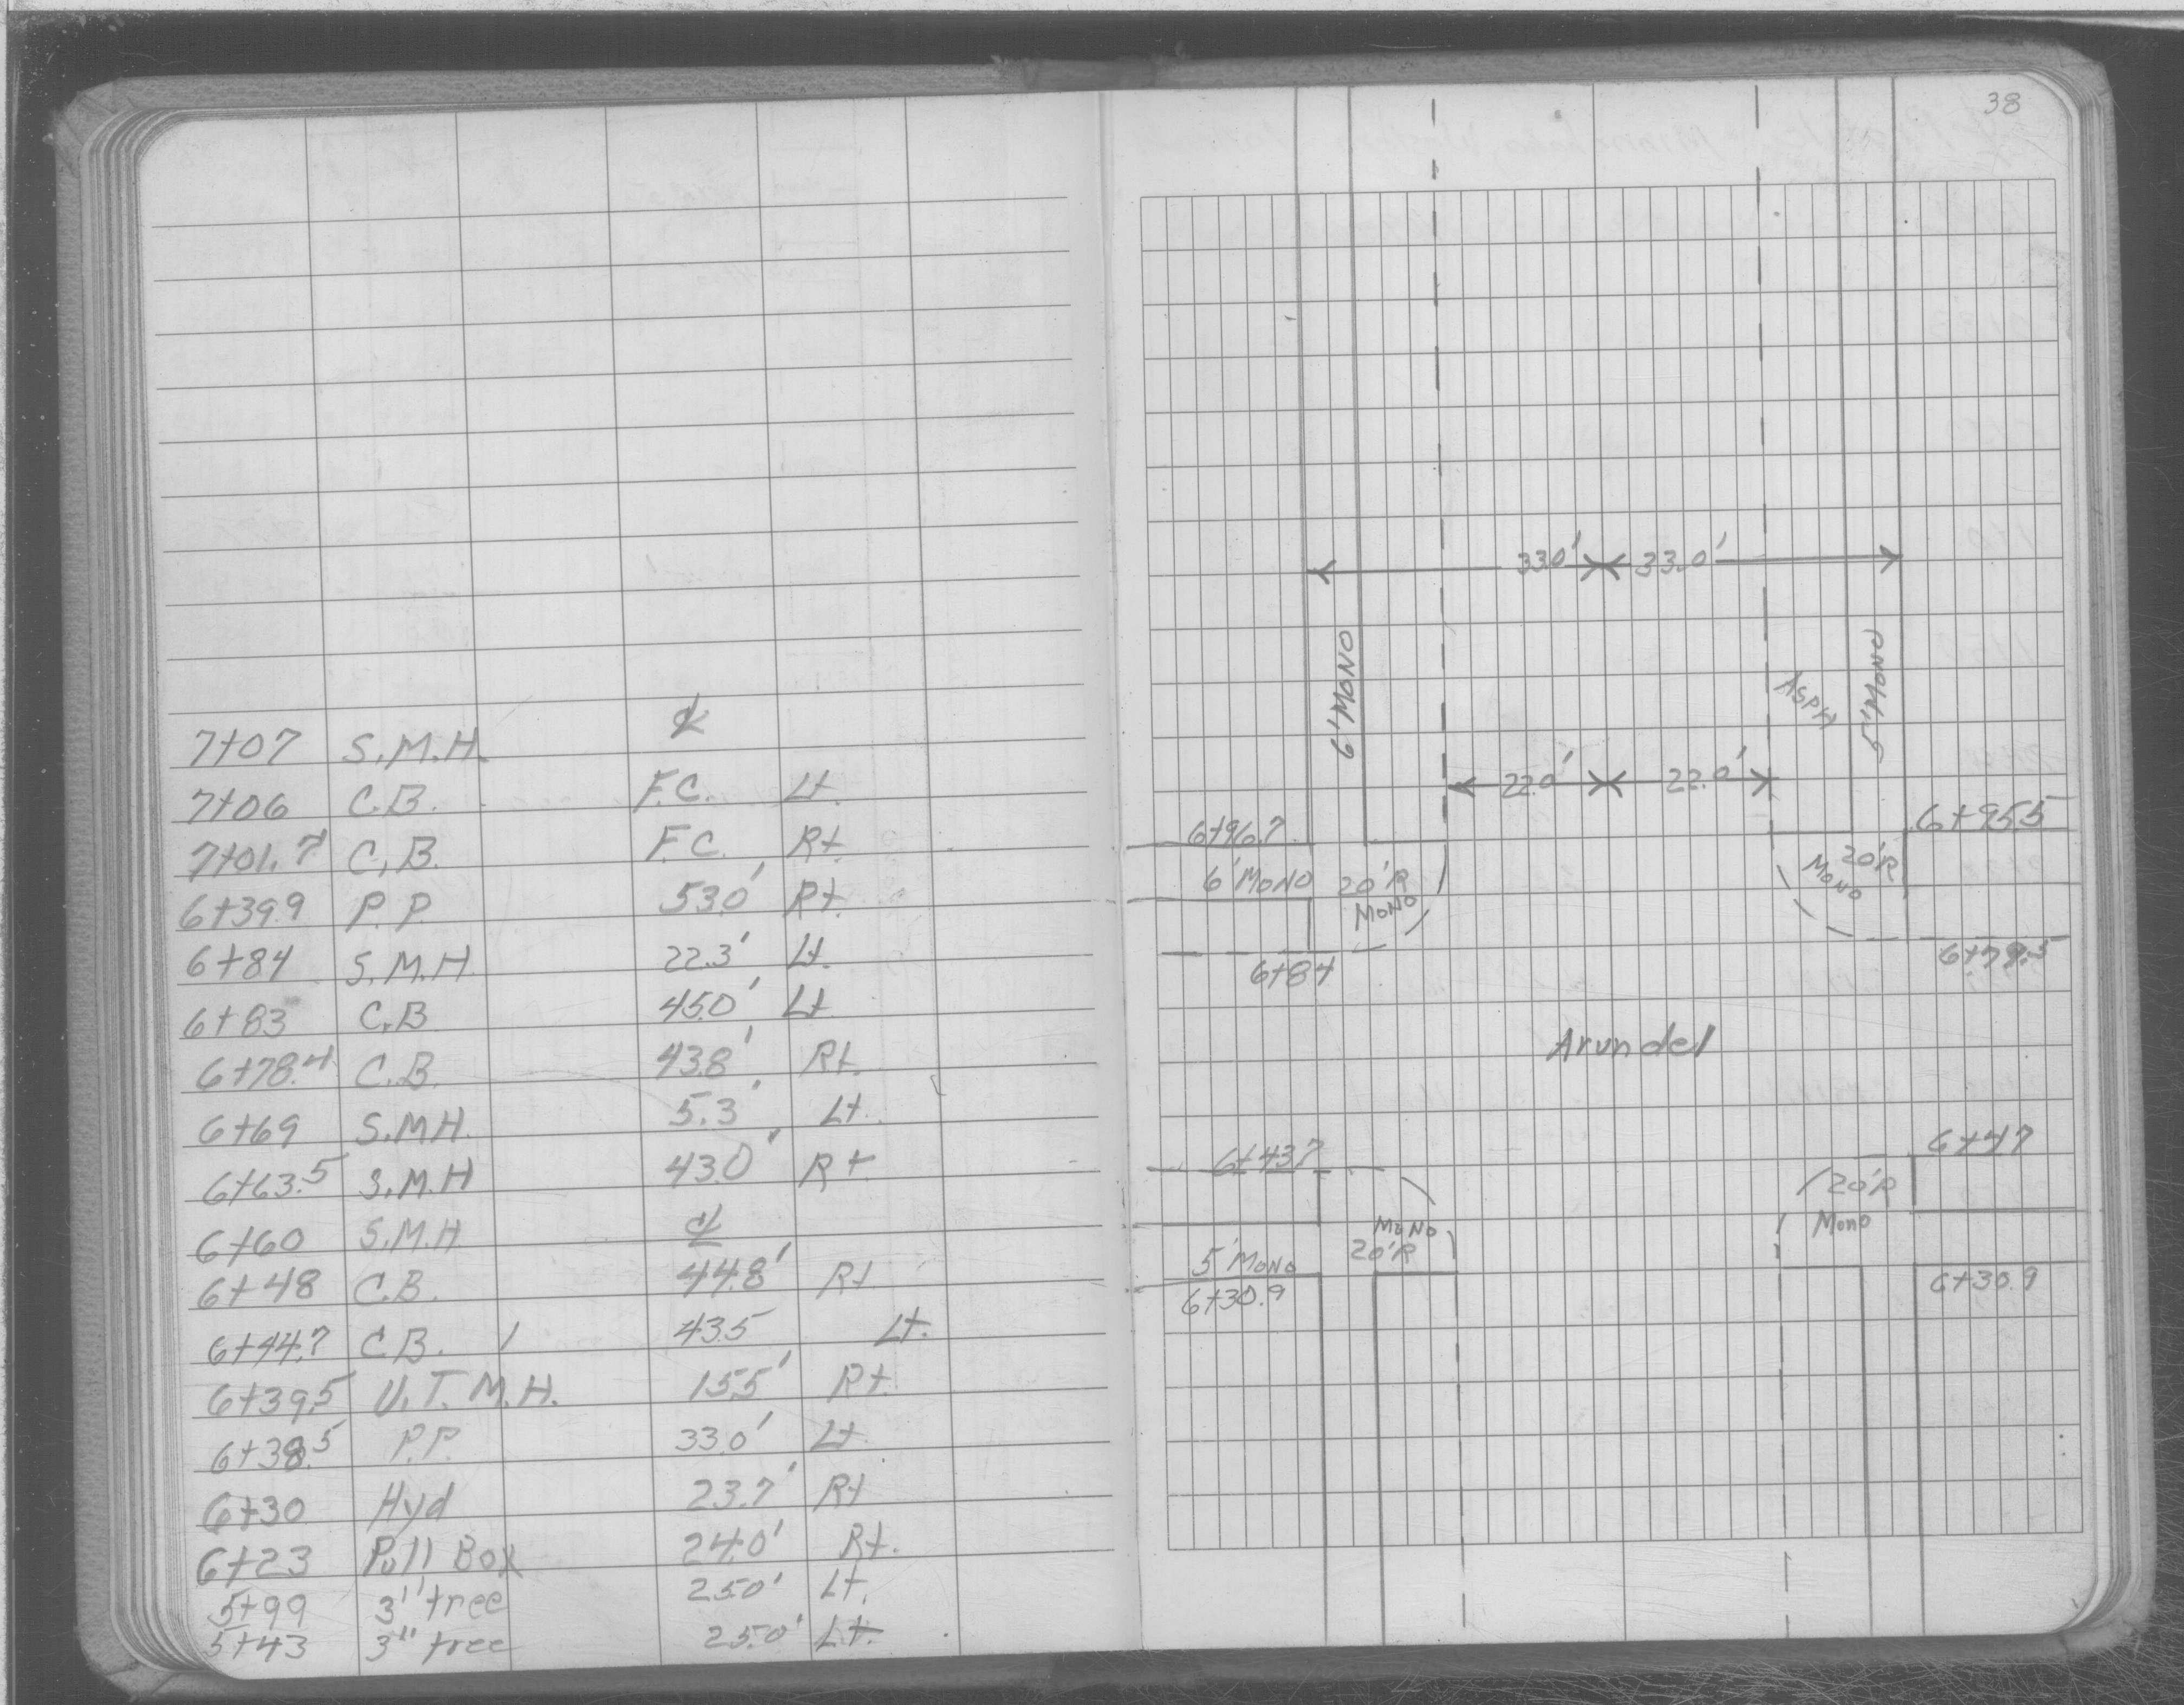 7+07 S.M.H. ℄
7+06 C.B. F.C. Lt.
7+01.7 C.B. F.C. Rt.
6+39.9 P.P. 53.0' Rt.
6+84 S.M.H. 22.3' Lt.
6+83 C.B 45.0' Lt
6+78.4 C.B. 43.8' Rt.
6+69 S.M.H. 5.3' Lt.
6+63.5 S.M.H 43.0' Rt
6+60 S.M.H ℄
6+48 C.B. 44.8' Rt
6+44.7 C.B. 43.5 Lt.
6+39.5 U.T.M.H. 15.5' Rt.
6+38.5 P.P. 33.0' Lt.
6+30 Hyd 23.7' Rt
6+23 Pull Box 24.0' Rt.
5+99 3" tree 25.0' Lt.
5+43 3" tree 25.0' Lt.
38
33.0' 33.0'
6' MONO
ASPH
5' MONO
22.0' 22.0'
6+96.7
6+95.5
6' MONO
20'R
MONO
20'R
MONO
6+84
6+79.5
Arundel
6+43.7
6+47
20'R
Mono
MONO
20'R
5' MONO
6+30.9
6+30.9